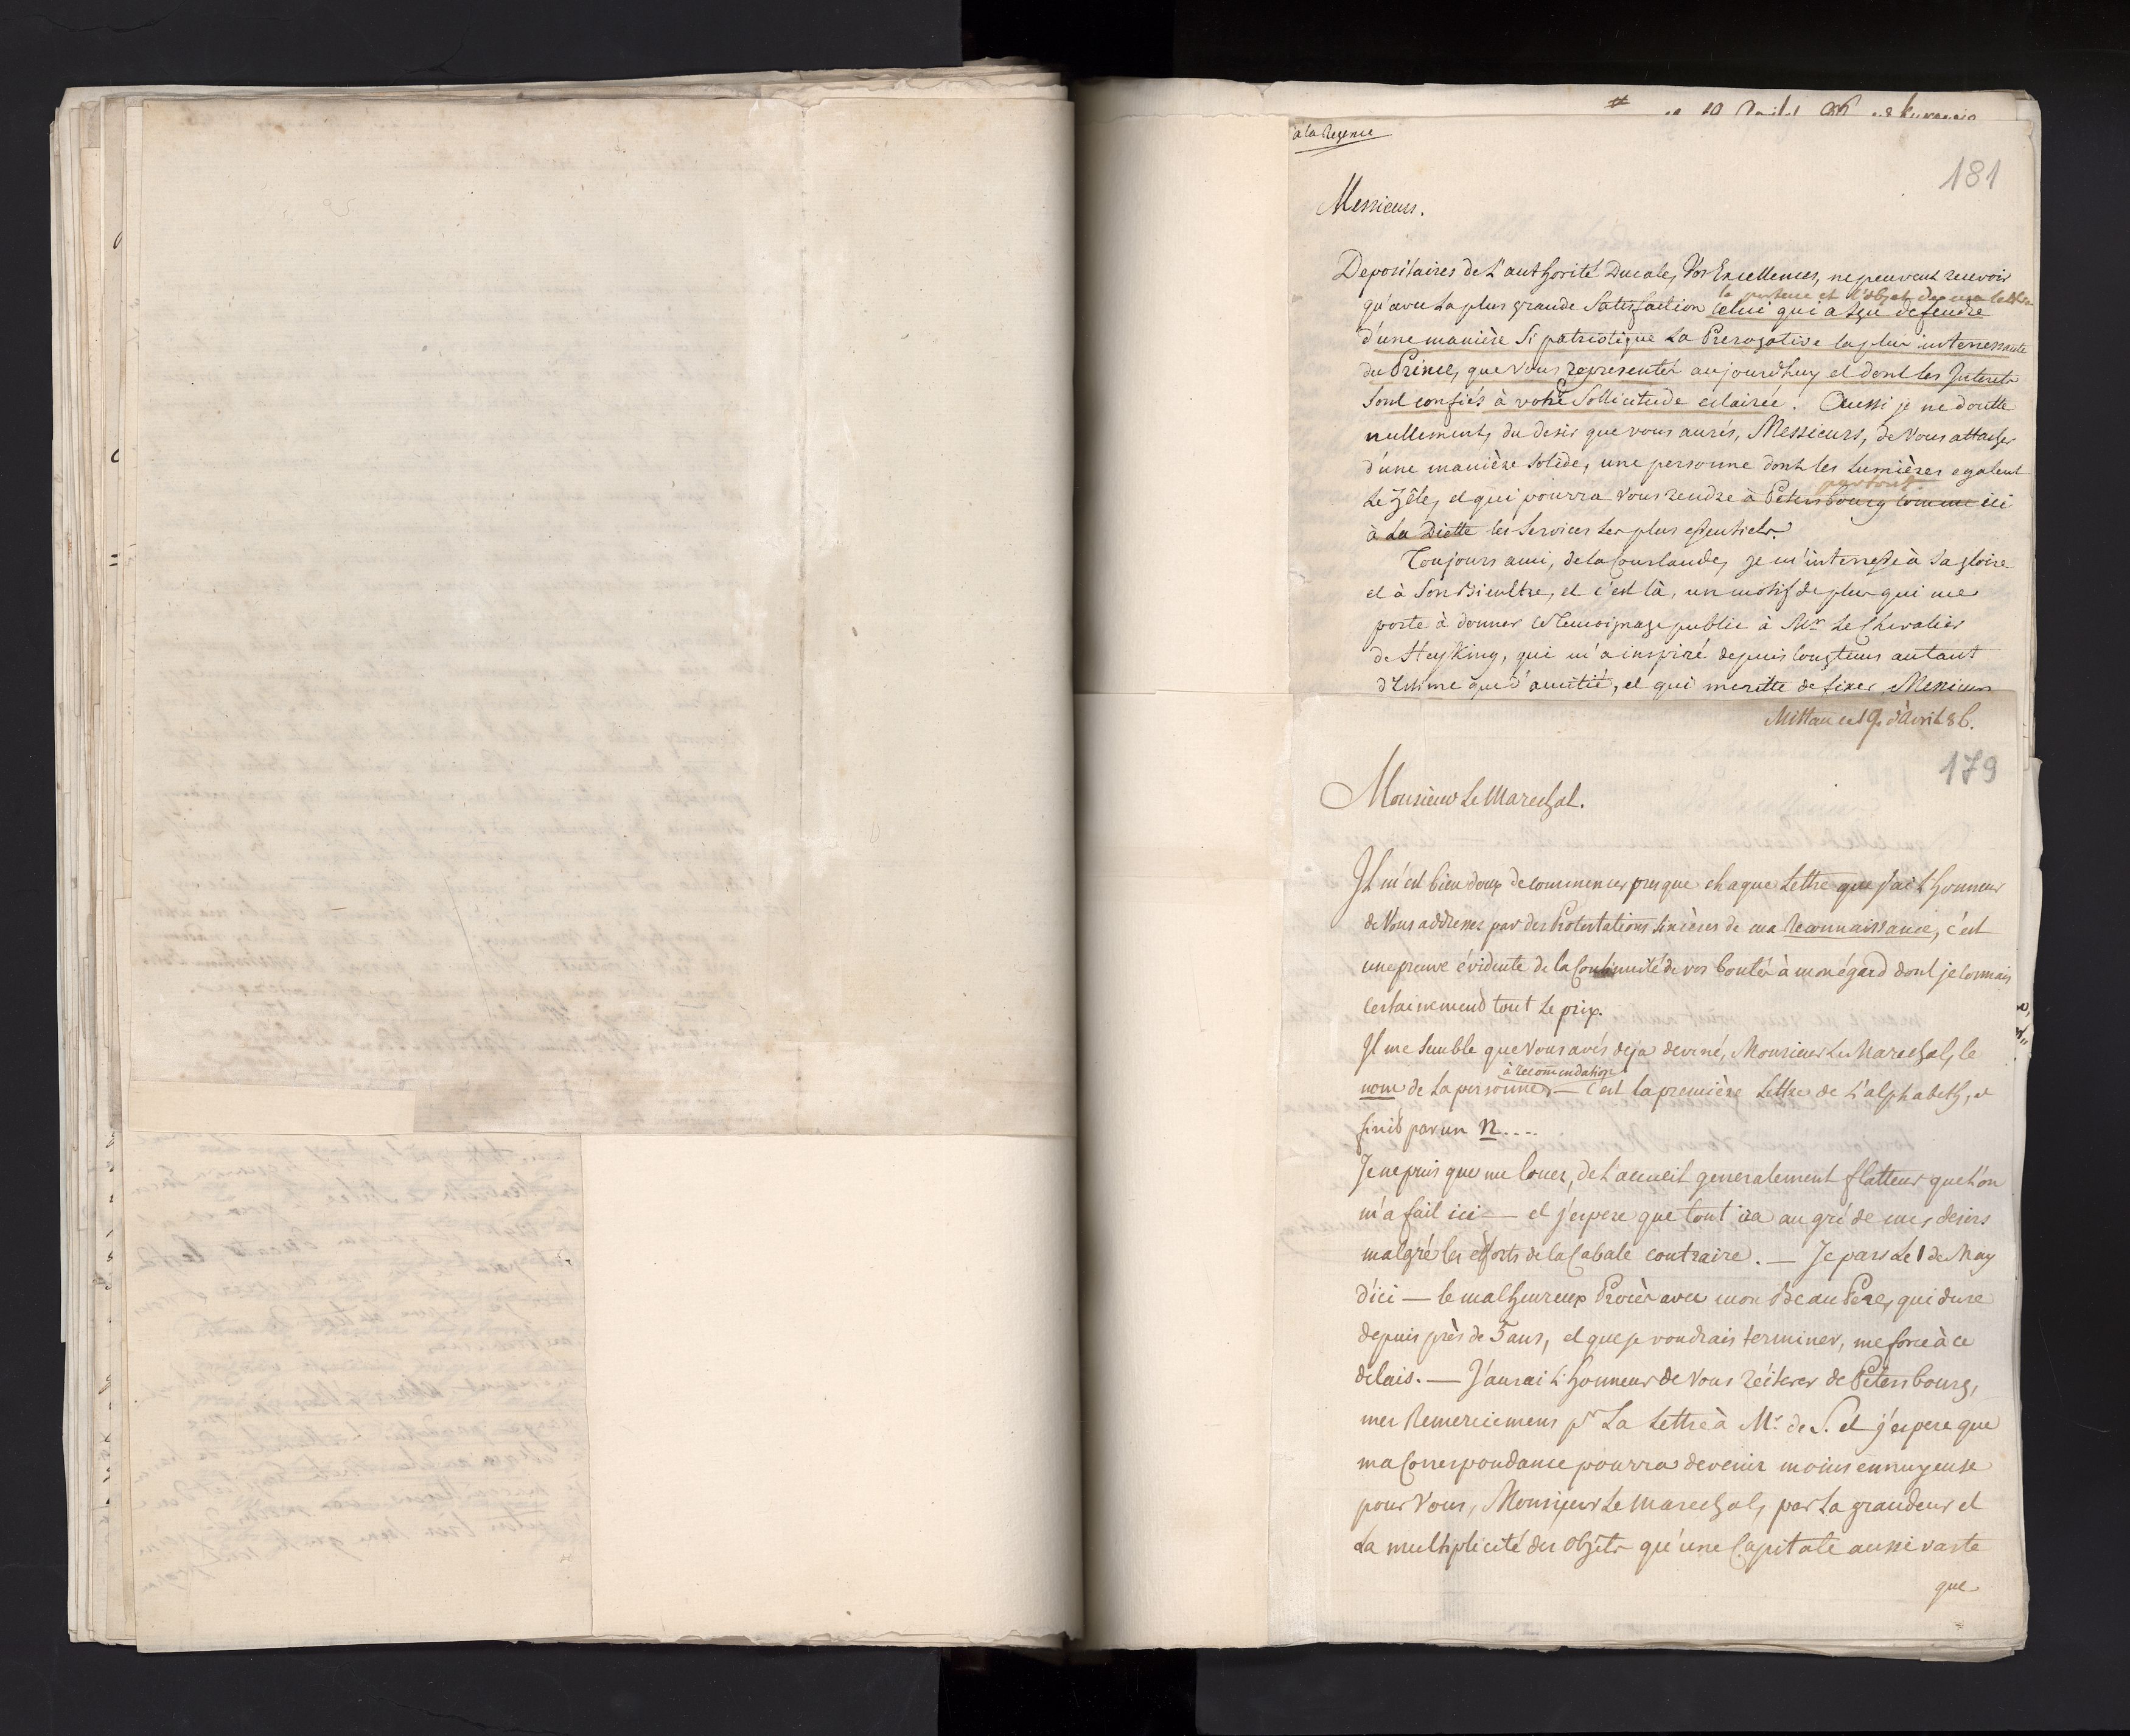 a la Regence
181
Messieurs.
Depositaires de L'authorité Ducale, Vos Excellences, ne peuvent recevoir
le porteur et l'objet de ma lettre
qu'avec La plus grande Satisfaction celui qui a sçu defendre
d'une manière Si patriotique La Prerogative la plus interressante
du Prince, que vous representés aujourdhuy et dont les Interets
Sont confiés à votre Sollicitude eclairée. Aussi je ne doutte
nullement, du desir que vous aurés, Messieurs, de Vous attacher
d'une manière Solide, une personne dont les Lumières egalent
partout
Le Zêle, et qui pourra Vous rendre à Petersbourg comme ici
à La Diette les Services Les plus essentiels.
Toujours ami, de la Courlande, je m'interresse à Sa gloire
et à Son Bienêtre, et c'est là, un motif de plus qui me
porte à donner ce Temoignage public à Mr. Le Chevalier
de HeyKing, qui m'a inspiré depuis longtems autant
d'Estime que d'amitié, et qui meritte de fixer Messieurs
Mittau ce 19. d'Avril 86.
179
Monsieur Le Marechal.
Il m'est bien doux de commencer presque chaque Lettre que j'ai L'honneur
de Vous addresser par des Protestations sincères de ma reconnaissance, c'est
une preuve évidente de la Continuité de vos bontés à mon égard dont je connais
certainement tout Le prix.
Il me Semble que Vous avés deja deviné, Monsieur Le Marechal, le
à recommendation
nom de La personne, — c'est la première Lettre de L'alphabeth, et
finit par un n....
Je ne puis que me louer, de L'accueil generalement flatteur que L'on
m'a fait ici — et j'espere que tout ira au gré de mes desirs
malgré les efforts de la Cabale contraire. — Je pars Le 1 de May
d'ici — le malheureux Procès avec mon Beau Pere, qui dure
depuis près de 5 ans, et que je voudrais terminer, me force à ce
delais. — J'aurai L'honneur de Vous réiterer de Petersbourg,
mes Remerciemens pr La Lettre à Mr. de S. et j'espere que
ma Correspondance pourra devenir moins ennuyeuse
pour Vous, Monsieur Le Marechal, par La grandeur et
La multiplicité des Objets qu'une Capitale aussi vaste
que